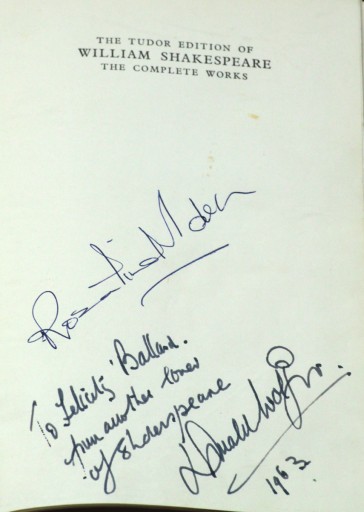 THE TUDOR EDITION OF
WILLIAM SHAKESPEARE
THE COMPLETE WORKS
To Felicity Ballard.
from another lover
of Shakespeare
Donald Wolfit
1963